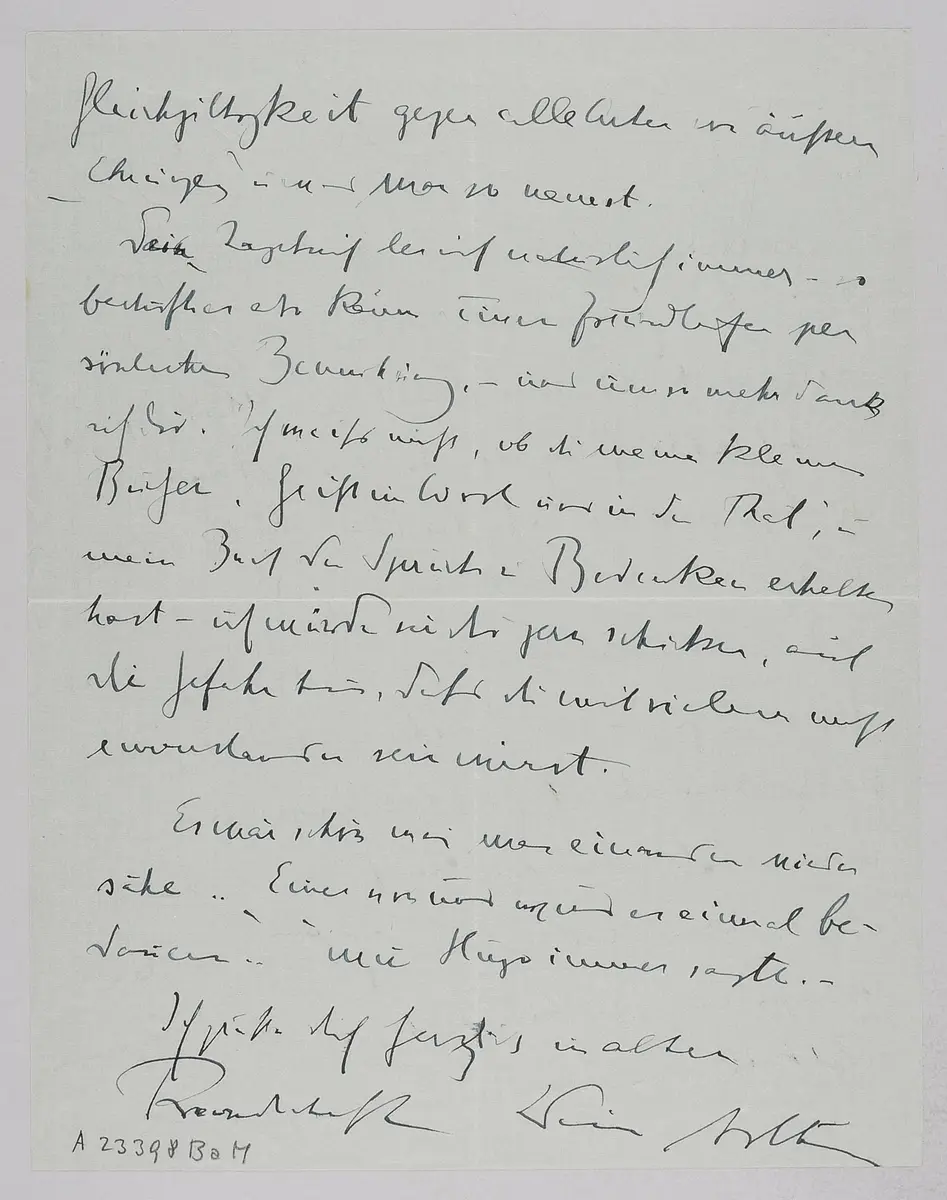 Gleichgiltigkeit gegen alle Arten von äußern
„Ehrungen“ u und man so nennt.
Dein Tagebuch les ich natürlich immer – so
bedürfte es kaum einer freundlichen per
sönlichen Bemerkung, – und umsomehr dank
ich dir. Ich weiß nicht, ob du meine kleinen
Bücher, Geist im Wort und in der That, u
mein Buch der Sprüche u Bedenken erhalten
hast – ich würde sie dir gern schicken, auf
die Gefahr hin, daß du mit vielem nicht
einverstanden sein wirst.
Es wär schön wenn man einander wieder
sähe .. „Einer von uns wird es einmal be-
dauern..“ wie Hugo immer sagte. –
Ich grüße dich herzlich in alter
Freundschaft Dein Arthur
A 23398 Ba M